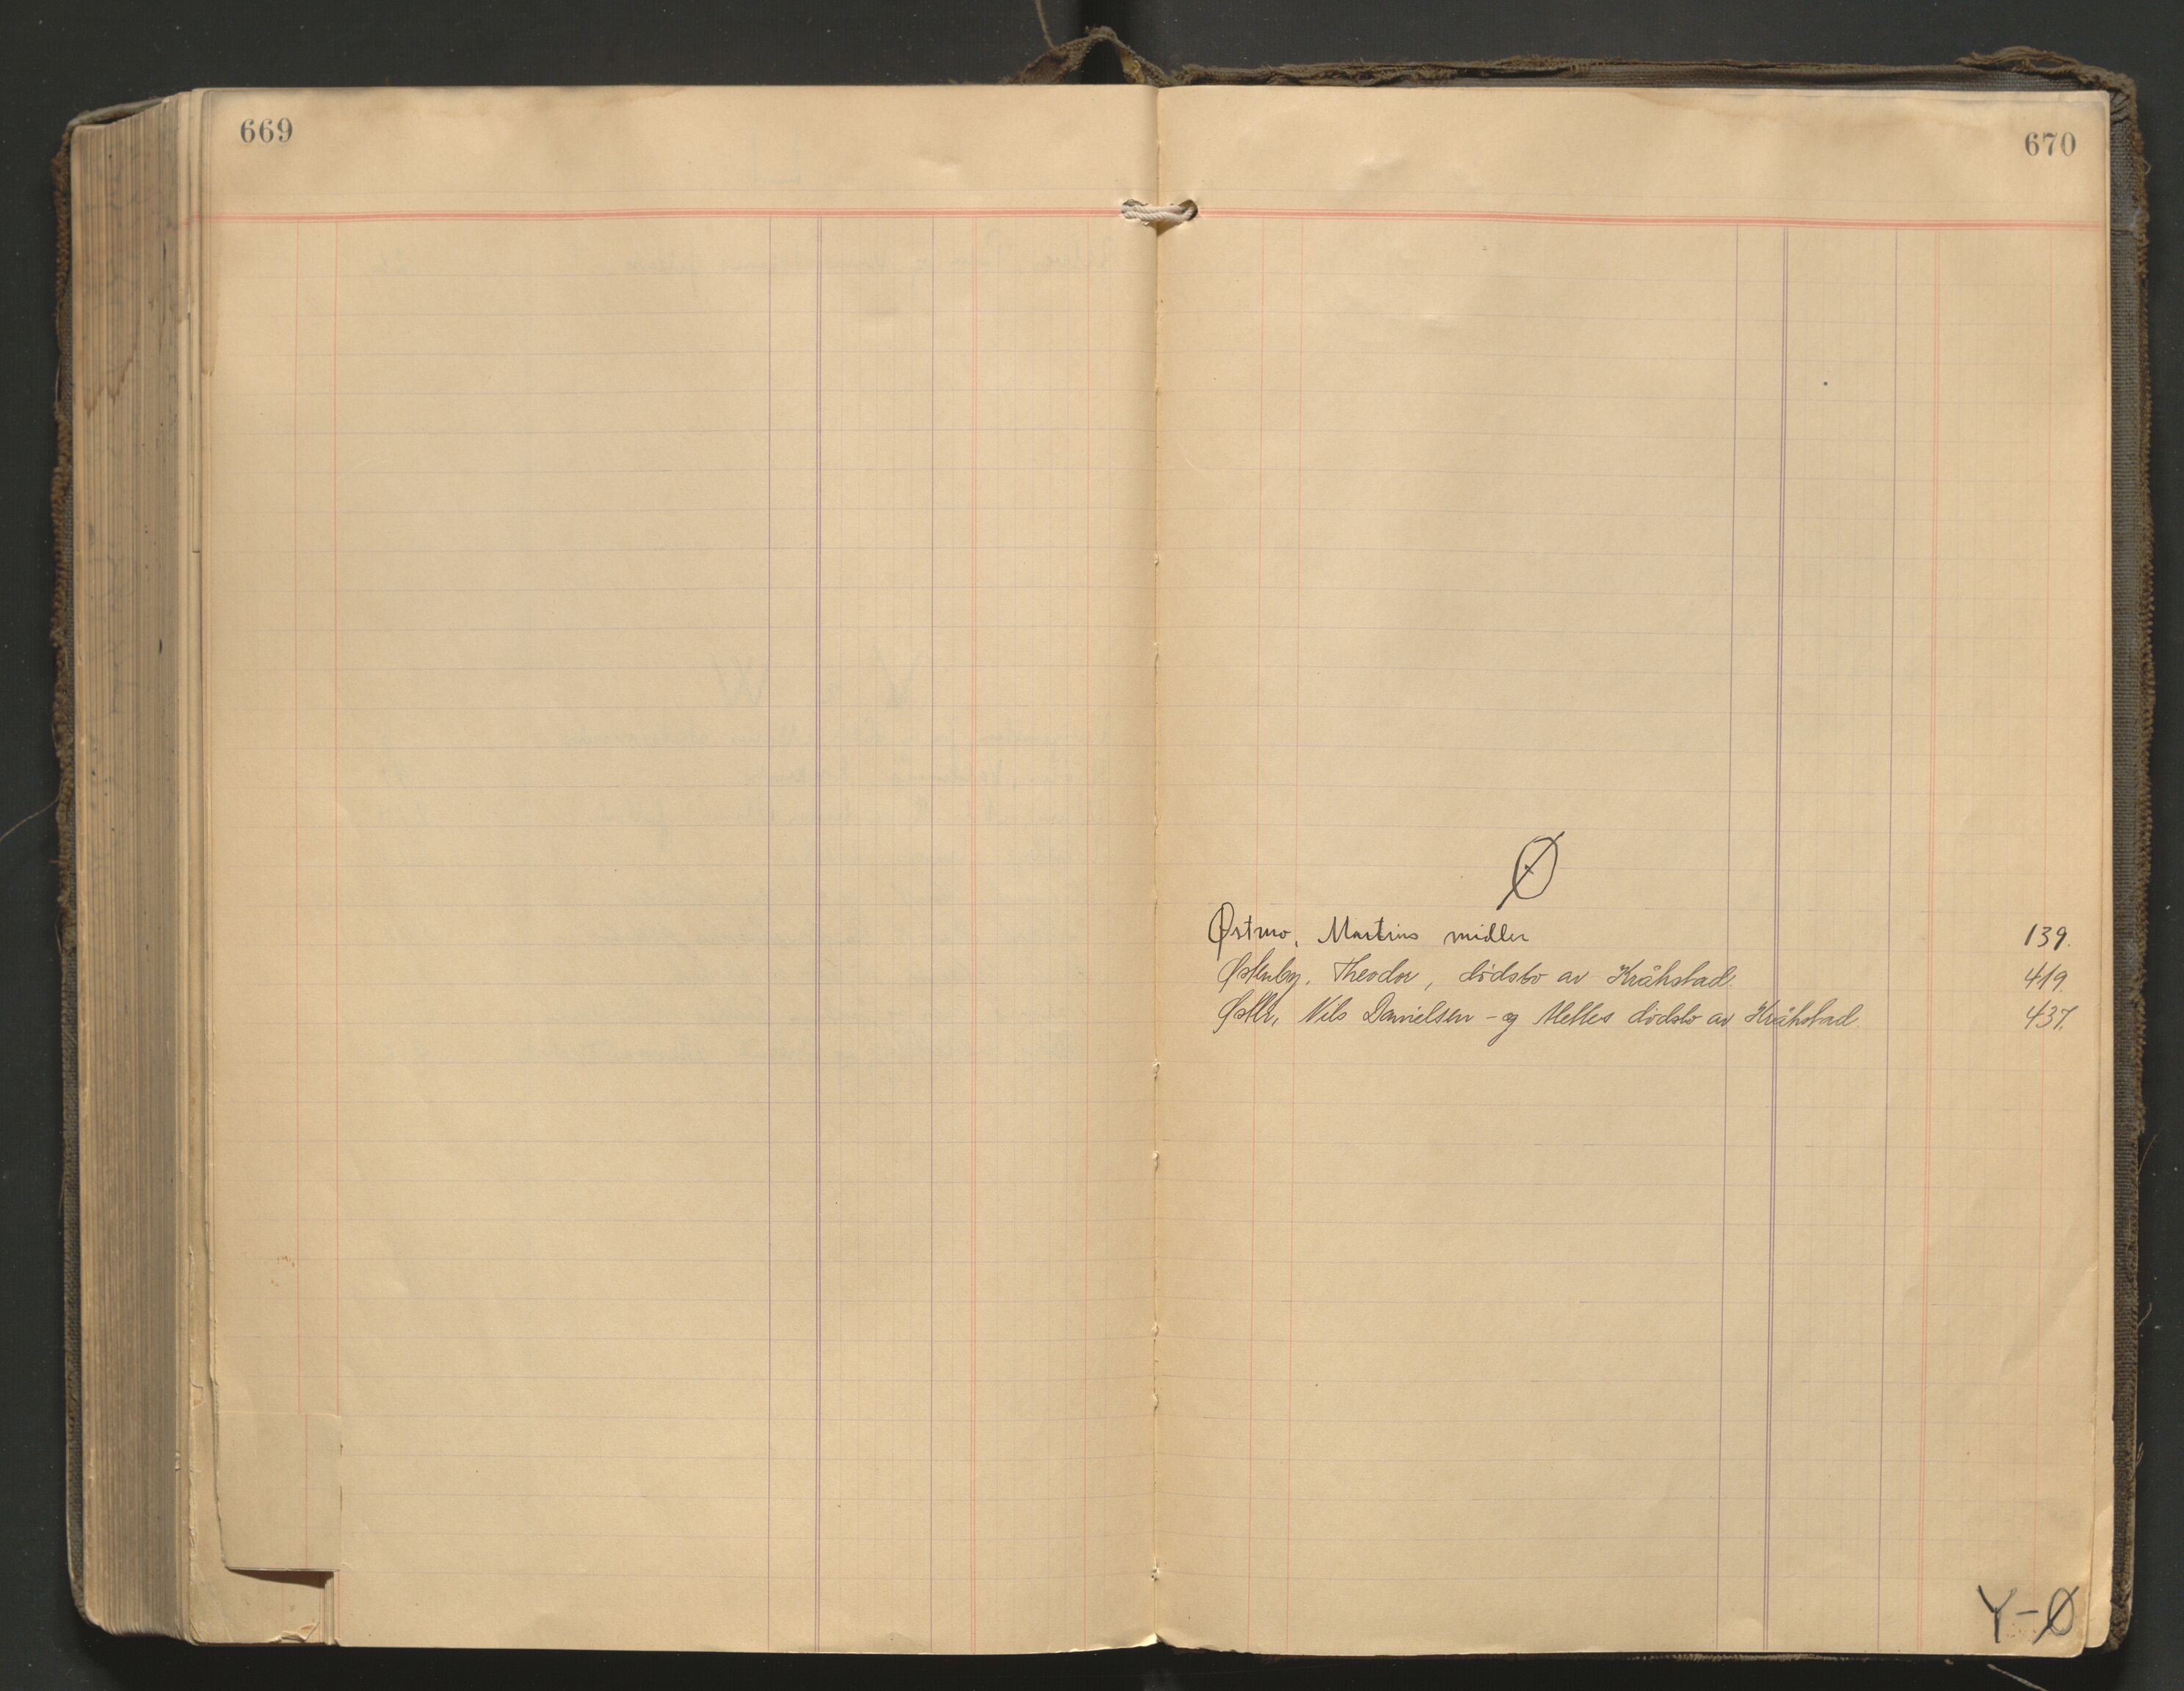 669
670
Ø
Østmo, Martins midler 139.
Østenby, Theodor, dødsbo av Kråkstad. 419
Østli, Nils Danielsen - og Mettes dødsbo av Kråkstad 437.
Y-Ø